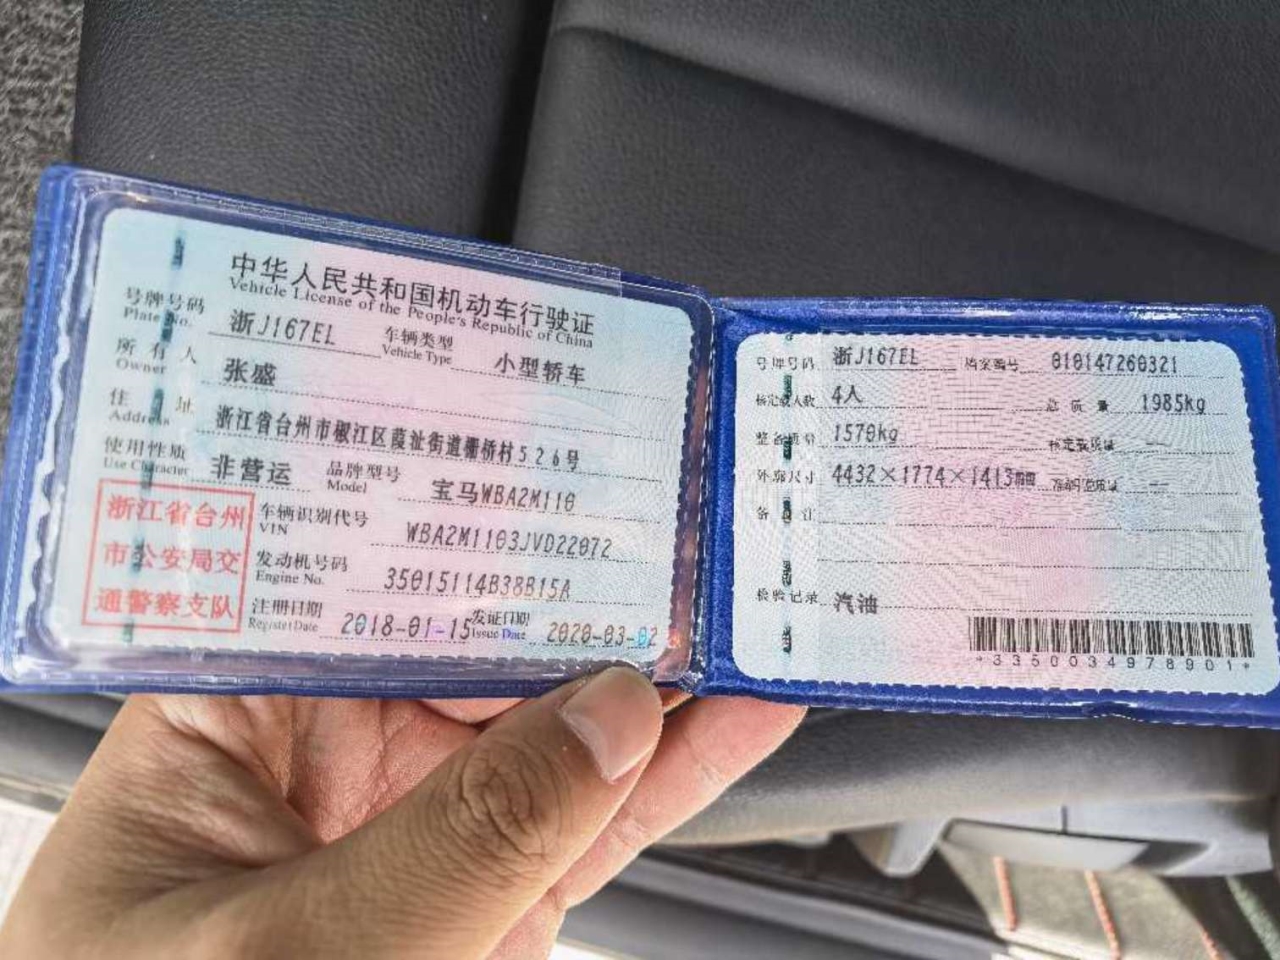 中华人民共和国机动车行驶证
Vehicle License of the People's Republic of China
号牌号码 浙J167EL 车辆类型 小型轿车
Plate No. Vehicle Type
所有人 张盛
Owner
住址 浙江省台州市椒江区葭沚街道栅桥村526号
Address
使用性质 非营运 品牌型号 宝马WBA2M110
Use Character Model
浙江省台州
市公安局交
通警察支队
车辆识别代号 WBA2M1103JVD22072
VIN
发动机号码 35015114B38B15A
Engine No.
注册日期 2018-01-15 发证日期 2020-03-02
Register Date Issue Date
号牌号码 浙J167EL 档案编号 010147260321
核定载人数 4人 总质量 1985kg
整备质量 1570kg 核定载质量 --
外廓尺寸 4432×1774×1413mm 准牵引总质量 --
备注
检验记录 汽油
*3350034978901*